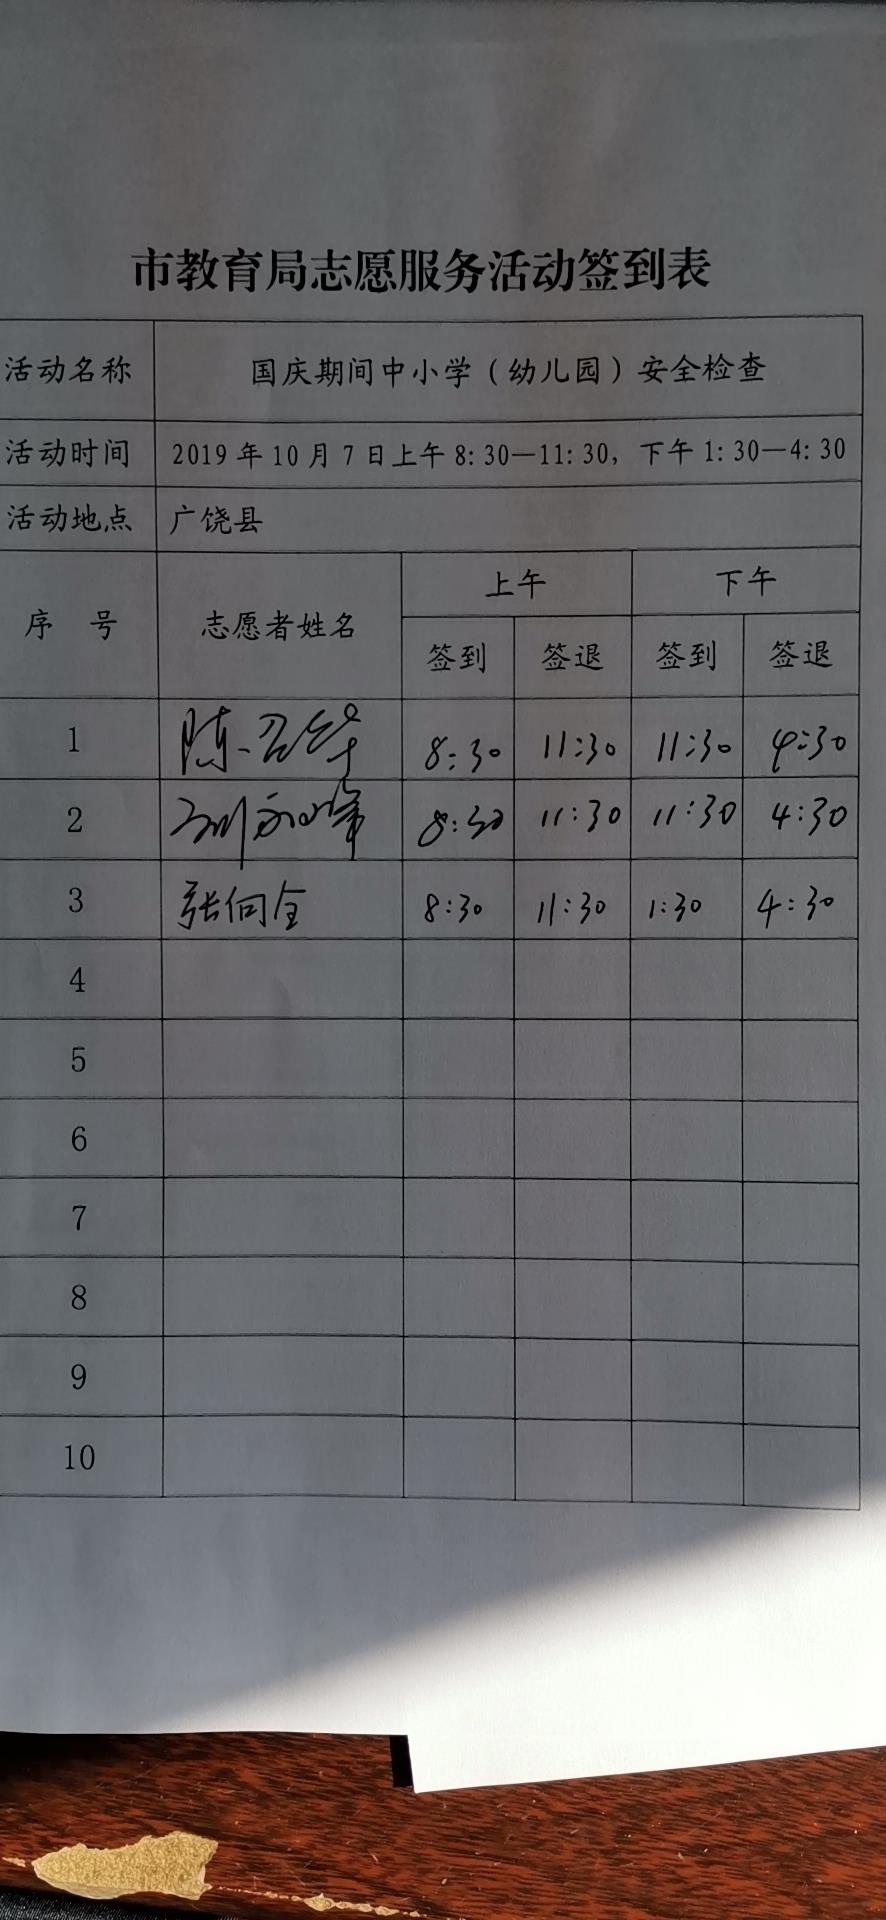 市教育局志愿服务活动签到表
活动名称 国庆期间中小学（幼儿园）安全检查
活动时间 2019年10月7日上午8:30—11:30，下午1:30—4:30
活动地点 广饶县
序 号 志愿者姓名 上午 下午
签到 签退 签到 签退
1 陈 8:30 11:30 11:30 4:30
2 8:30 11:30 11:30 4:30
3 张向全 8:30 11:30 1:30 4:30
4
5
6
7
8
9
10